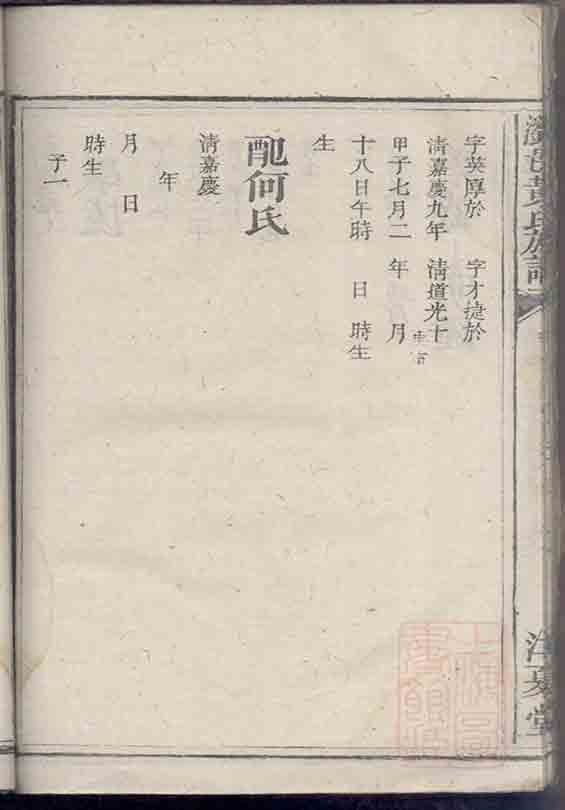 黃氏族譜
字英厚於
清嘉慶九年
甲子七月二
十八日午時
生
配何氏
清嘉慶
年
月 日
時生
子一
字才捷於
清道光十
年 月
日 時生